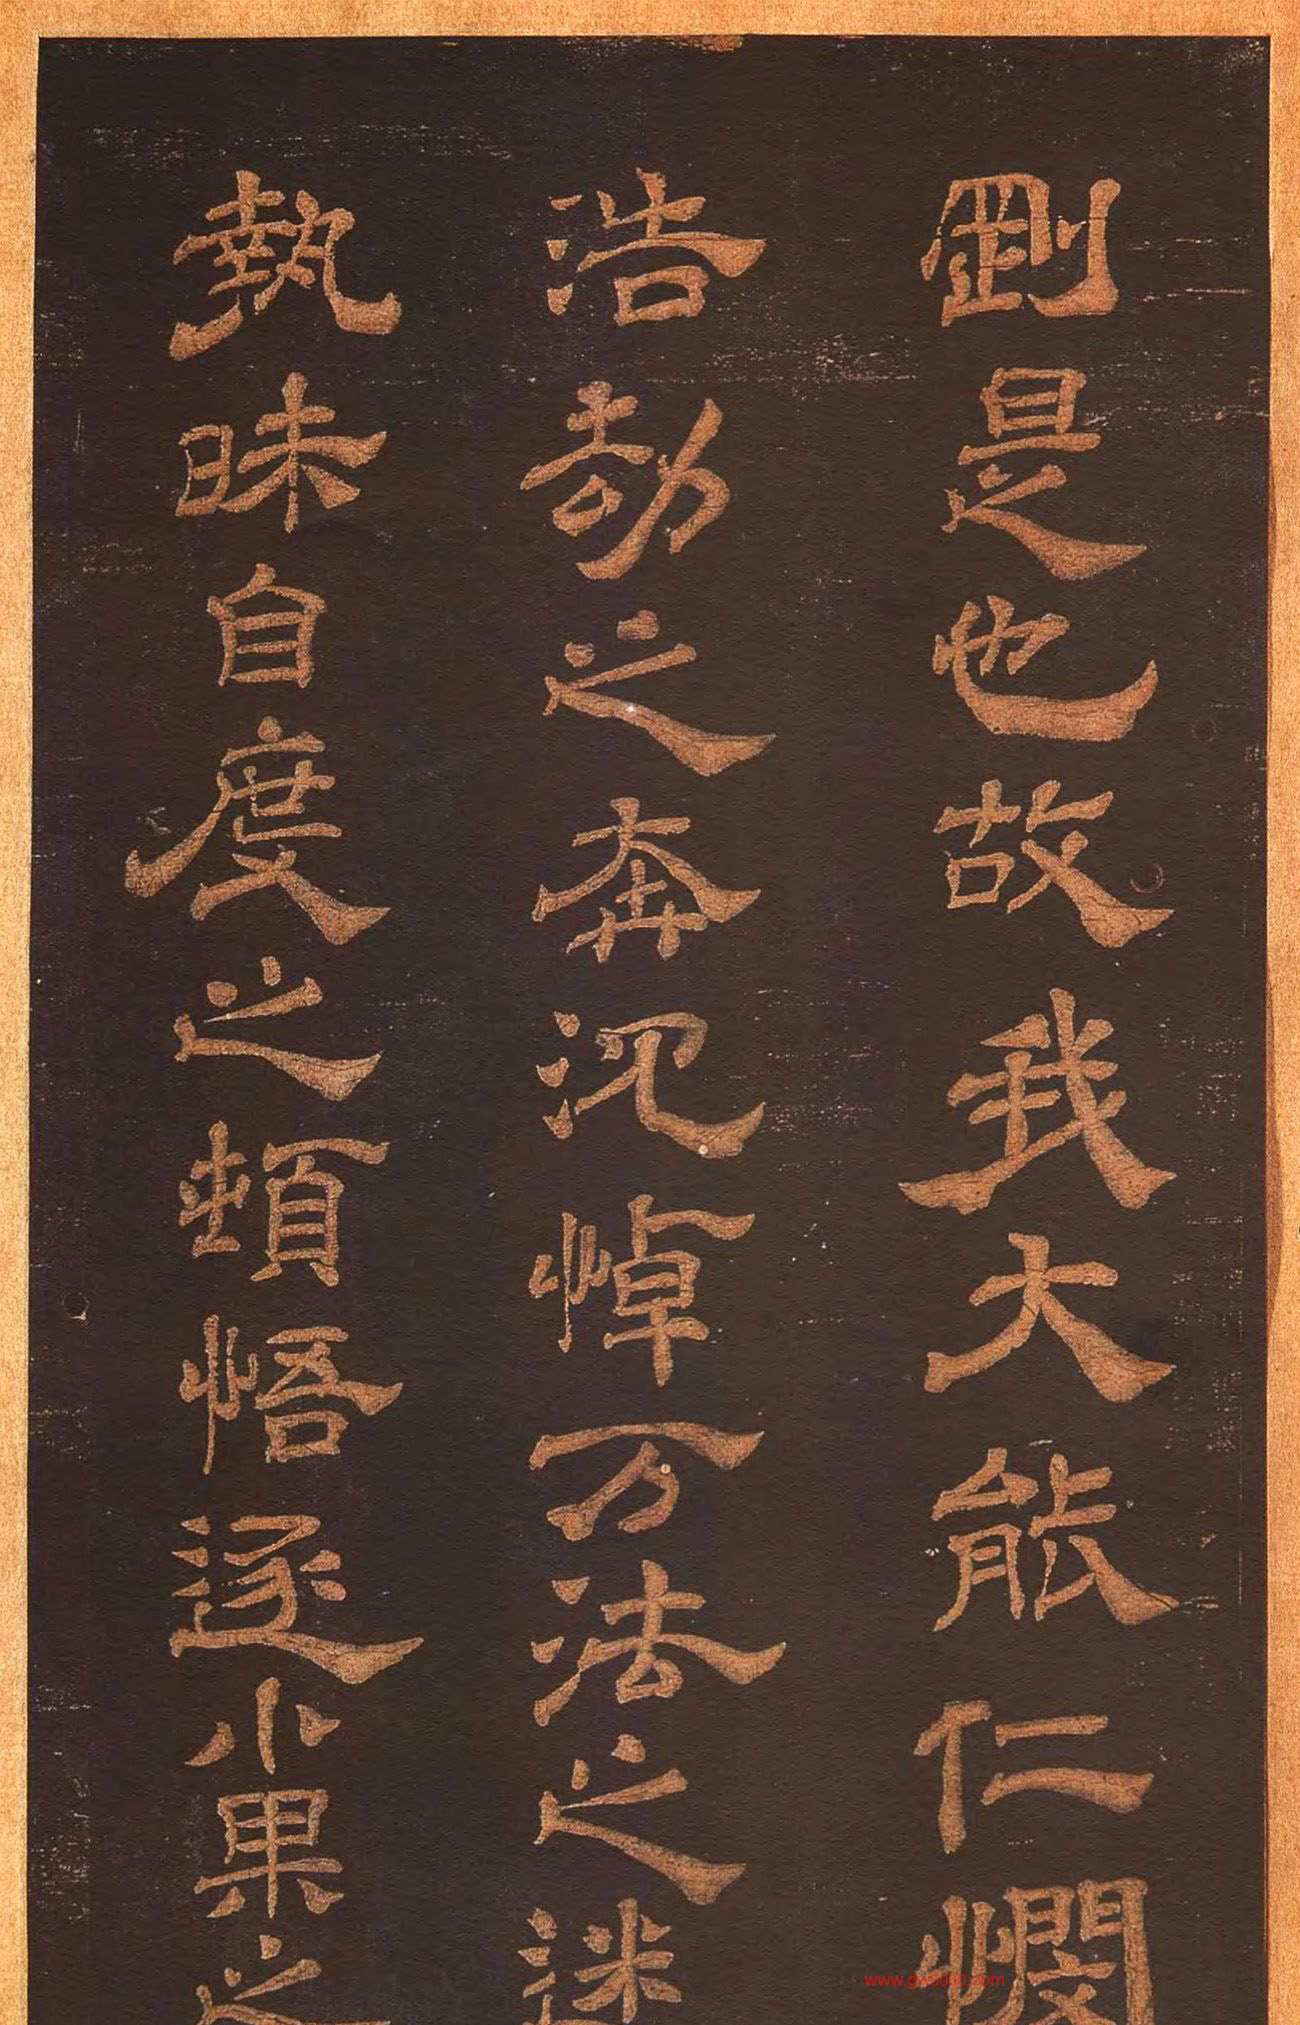 剛是也故我大能仁憫
浩劫之奔沉悼万法之迷
執昧自度之頓悟逐小果之
www.gw6060.com